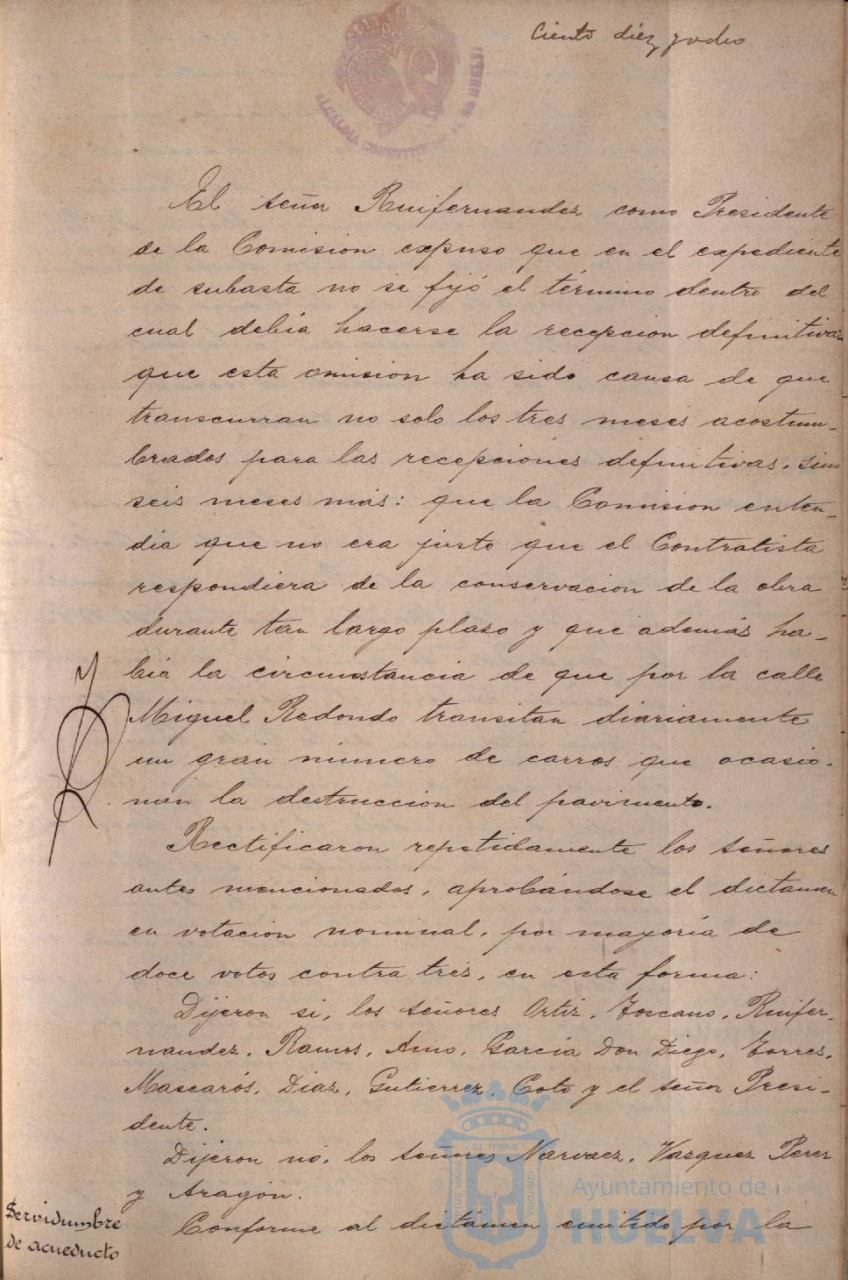 Ciento diez y ocho
El señor Ruifernandez como Presidente
de la Comisión expuso que en el expediente
de subasta no se fijó el término dentro del
cual debia hacerse la recepcion definitiva
que esta omisión ha sido causa de que
transcurran no solo los tres meses acostum-
brados para las recepciones definitivas, sino
seis meses más: que la Comision enten-
dia que no era justo que el Contratista
respondiera de la conservacion de la obra
durante tan largo plaso y que además ha-
bia la circunstancia de que por la calle
Miguel Redondo transitan diariamente
un gran número de carros que ocasio-
nan la destruccion del pavimento.
Rectificaron repetidamente los señores
antes mencionados, aprobándose el dictamen
en votación nominal, por mayoría de
doce votos contra tres, en esta forma:
Dijeron si, los señores Ortiz, Toscano, Ruifer-
nandez, Ramos, Amo, García Don Diego, Torres,
Mascarós, Diaz, Gutierrez, Coto y el señor Presi-
dente.
Dijeron nó, los señores Narvaez, Vazquez Perez
y Aragón.
Servidumbre
de acueducto
Conforme al dictamen emitido por la
Ayuntamiento de
HUELVA